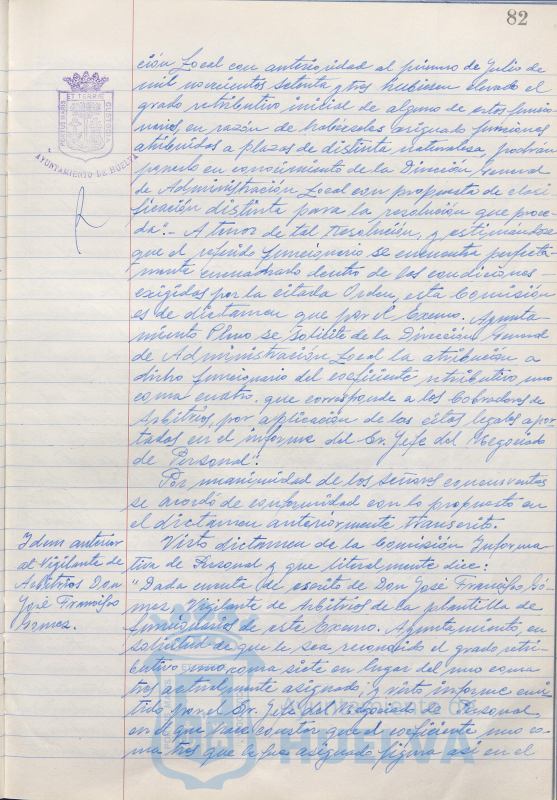 82
ción Local con anterioridad al primero de Julio de
mil novecientos setenta y tres hubiesen elevado el
grado retributivo inicial de alguno de estos funcio-
narios, en razón de habérseles asignado funciones
atribuidas a plazas de distinta naturaleza, podrán
ponerlo en conocimiento de la Dirección General
de Administración Local con propuesta de clasi
ficación distinta para la resolución que proce
da".- A tenor de tal Resolución, y estimándose
que el referido funcionario se encuentra perfecta-
mente encuadrado dentro de las condiciones
exigidas por la citada Orden, esta Comisión
es de dictamen que por el Excmo. Ayunta-
miento Pleno se solicite de la Dirección General
de Administración Local la atribución a
dicho funcionario del coeficiente retributivo uno
coma cuatro, que corresponde a los Cobradores de
Arbitrios, por aplicación de las citas legales apor
tadas en el informe del Sr. Jefe del Negociado
de Personal".
Por unanimidad de los señores concurrentes
se acordó de conformidad con lo propuesto en
el dictamen anteriormente transcrito.
Idem anterior
al Vigilante de
Arbitrios Don
José Francisco
Gómez.
Visto dictamen de la Comisión Informa
tiva de Personal y que literalmente dice:
"Dada cuenta de escrito de Don José Francisco Gó-
mez, Vigilante de Arbitrios de la plantilla de
funcionarios de este Excmo. Ayuntamiento, en
solicitud de que le sea reconocido el grado retri-
butivo uno coma siete en lugar del uno coma
tres actualmente asignado, y visto informe emi
tido por el Sr. Jefe del Negociado de Personal,
en el que hace constar que el coeficiente uno co-
ma tres que le fue asignado figura así en el
AYUNTAMIENTO DE HUELVA
HUELVA